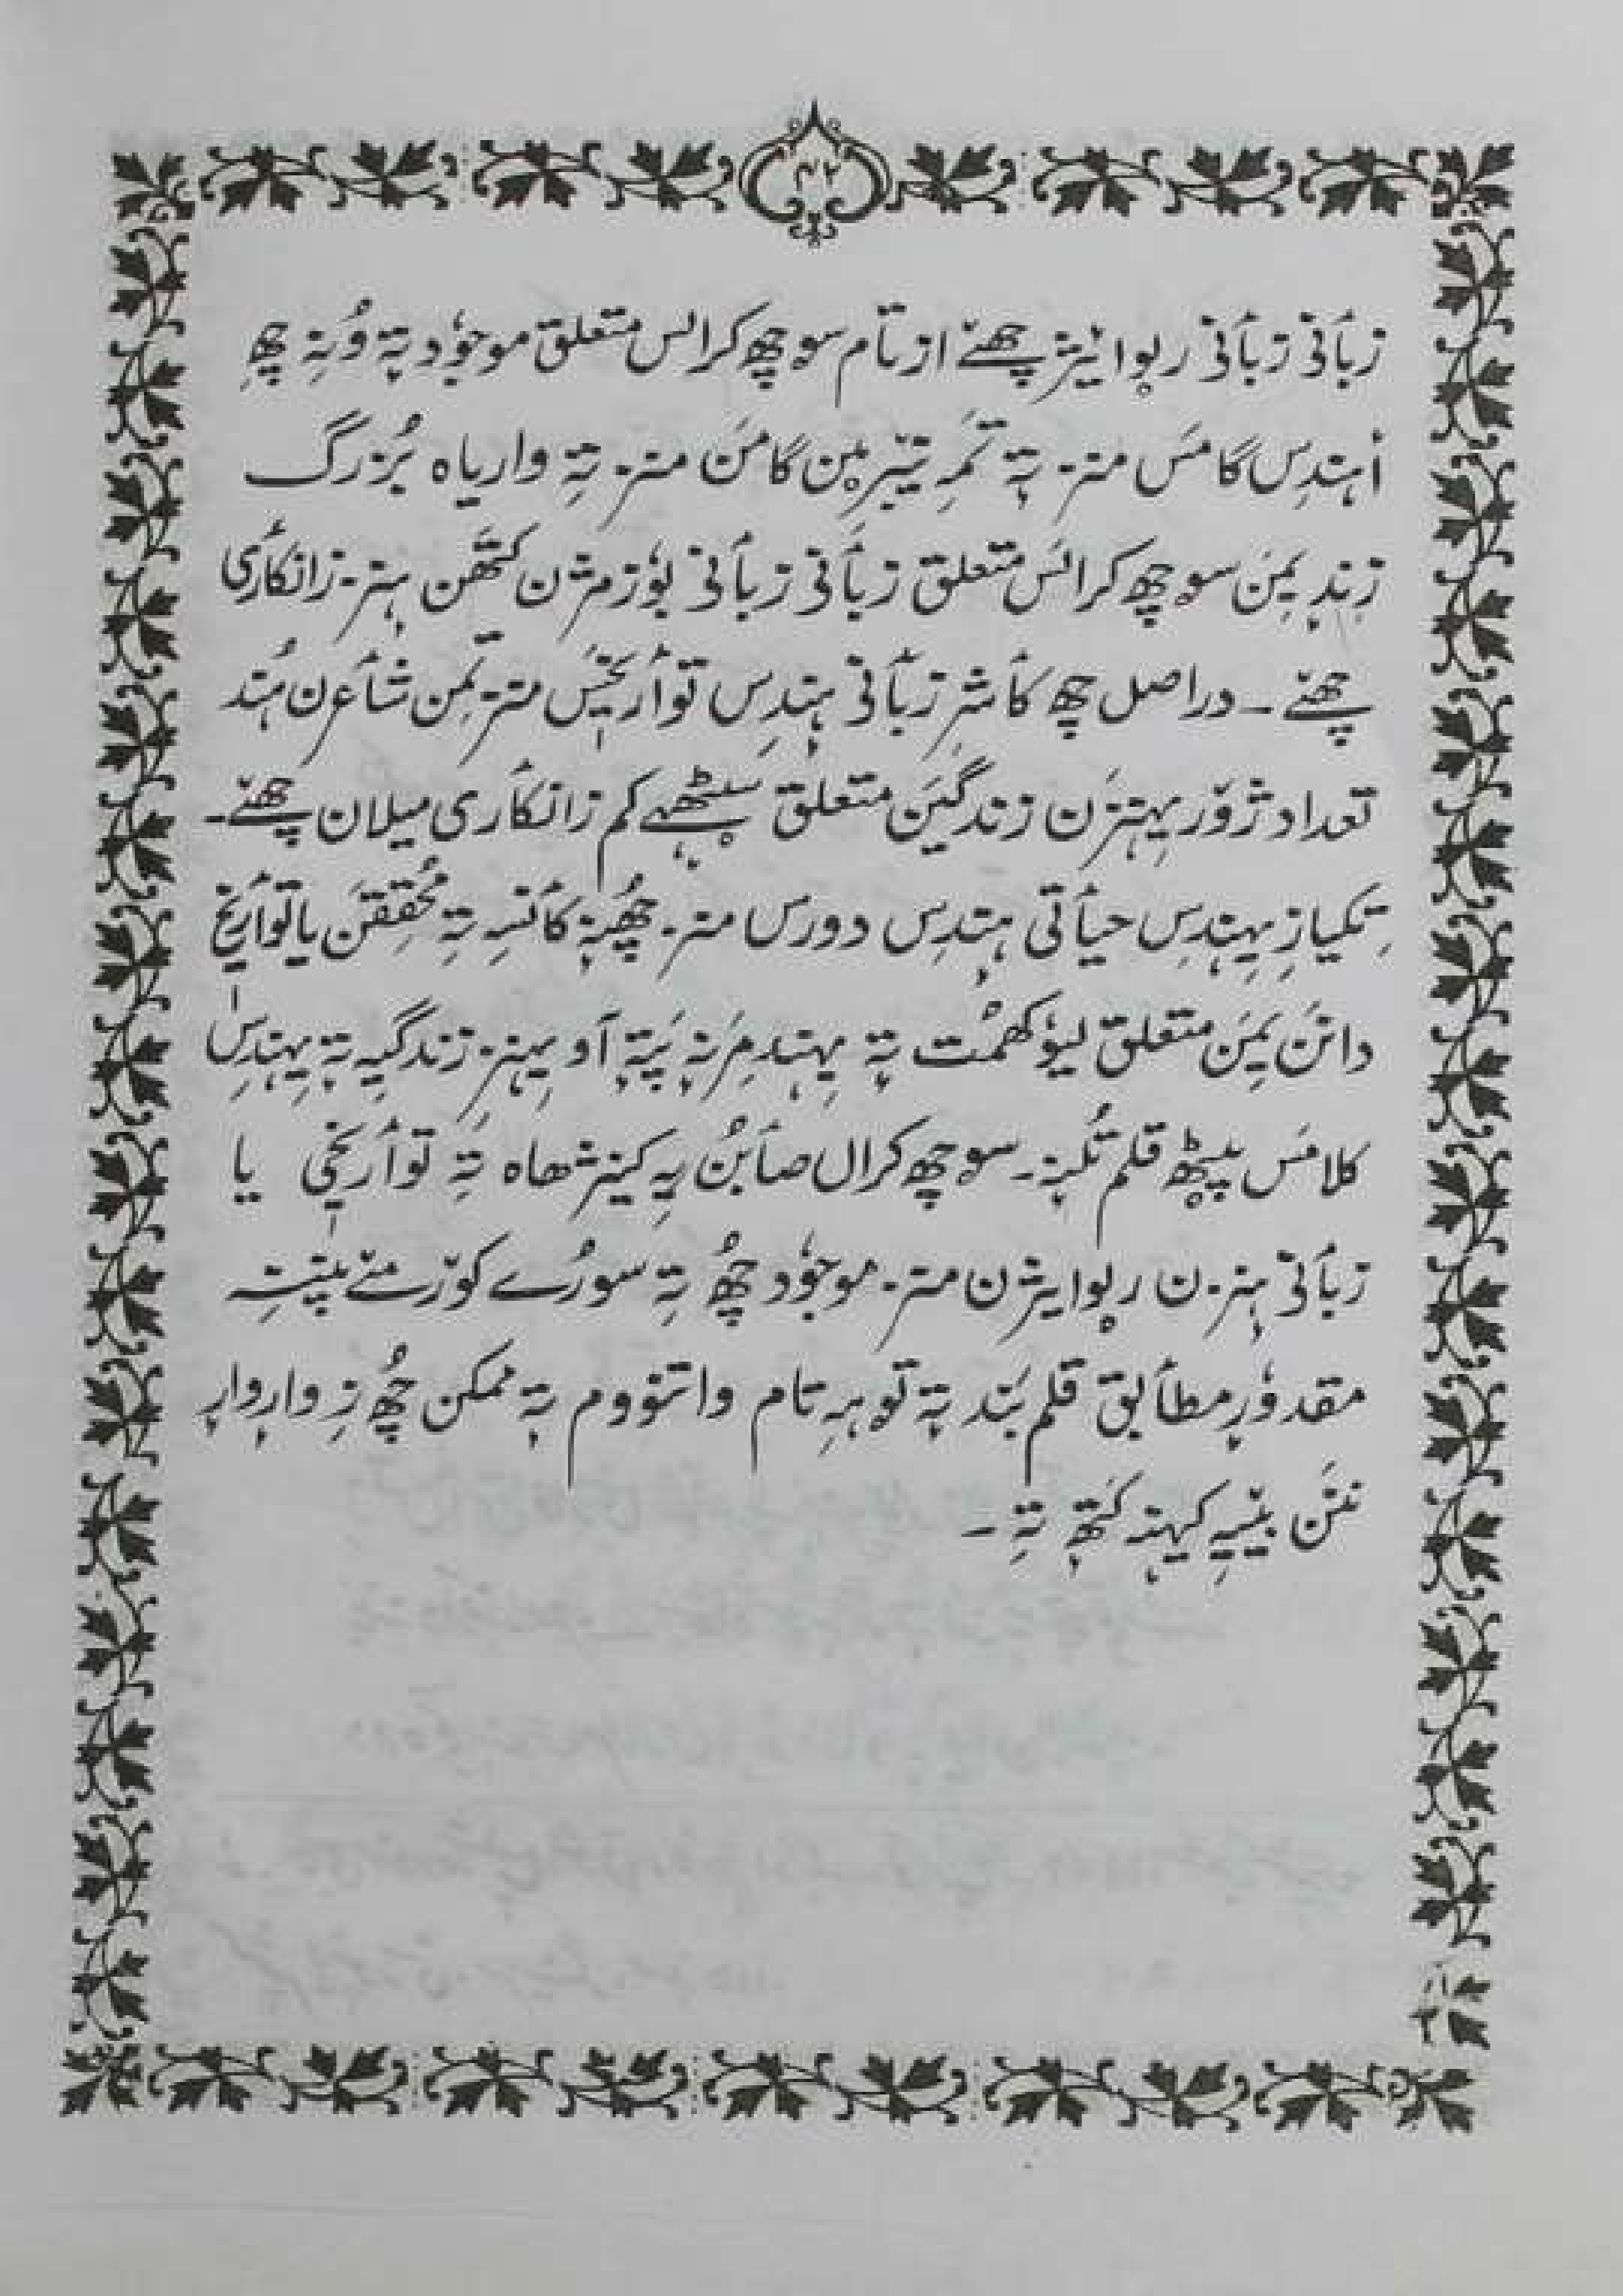 ۴۲
زبأنی زبأنی رِوایژ چھےٚ از تام سوچھ کرالس متعلق موجوٗد تہٕ وُنہِ چھِ
أہندِس گامَس منز تہٕ تَمہِ نیبرمیٚن گامَن منز تہِ واریاہ بُزرگ
زندٕ یِمَن سوچھ کرالَس متعلق زبأنی زبأنی بوٗزمژن کَتھن ہنز زانکأری
چھےٚ ۔ دراصل چھِ کأشرِ زبأنی ہندِس توأریٖخَس منز تِمَن شأعرن ہُند
تعداد ژوٚر یِہنزَن زندگیَن متعلق سیٚٹھہے کم زانکأری میلان چھےٚ۔
تِکیازِ یِہندِس حیأتی ہندِس دورس منز چھُنہٕ کأنسہِ تہِ مُحقِقَن یا توأریٖخ
دانَن یِمَن متعلق لیوٗکھمُت تہٕ یِہندِ مرنہٕ پَتہٕ آو یِہنزِ زندگیہِ تہٕ یِہندِس
کلامَس پیٚٹھ قلم تُلنہٕ۔ سوچھ کرال صأبُن یہِ کینژھاہ تہِ توأریٖخی یا
زبأنی ہنزن رِوایژن منز موجوٗد چھُ تہِ سورُے کوٚر مےٚ پننہِ
مقدوٗرٕ مطأبق قلم بَند تہٕ توہہِ تام واتنووم تہٕ ممکن چھُ زِ وارٕ وارٕ
ننَن بیٚیہِ کیہنہہ کَتھٕ تہِ ۔